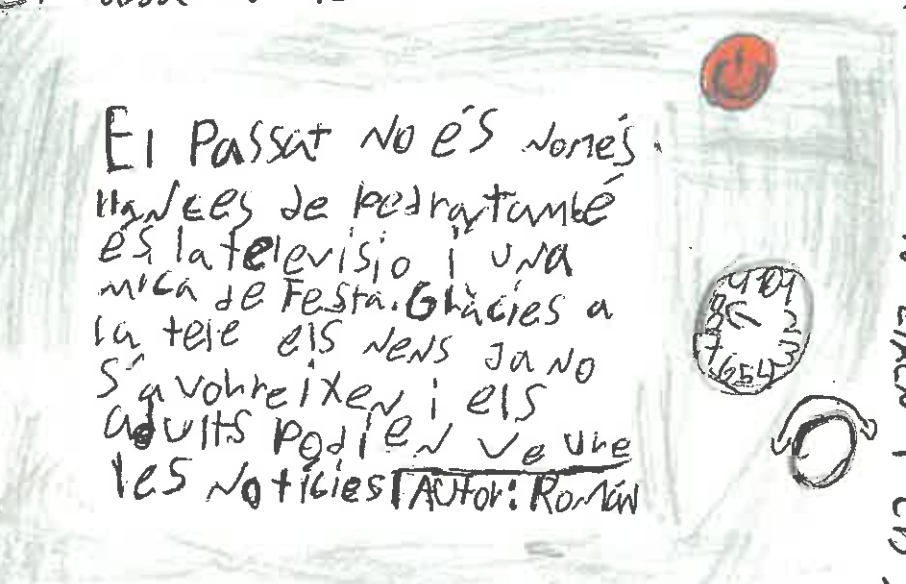 El Passat No és Només
llances de pedra, també
és la televisio i una
mica de Festa. Gràcies a
la tele els Nens Ja No
s'avorreixen i els
adults podien veure
les Notícies Autor: Román